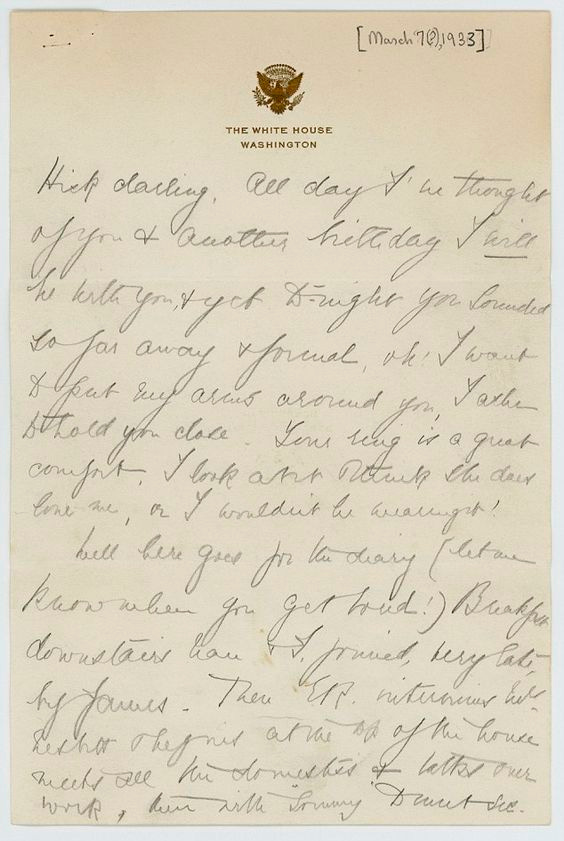 [March 7(?), 1933]
THE WHITE HOUSE
WASHINGTON
Hick darling, All day I've thought
of you & another birthday I will
be with you, & yet to-night you sounded
so far away & formal, oh! I want
to put my arms around you, I ache
to hold you close. Your ring is a great
comfort, I look at it & think she does
love me, or I wouldn't be wearing it!
Well here goes for the diary (let me
know when you get bored!) Breakfast
downstairs & I, joined, very late,
by James. Then E.R. interviews Mrs.
Nesbitt & begins at the top of the house
meets all the domestics & talks over
work, then with "Tommy" to meet Sec.